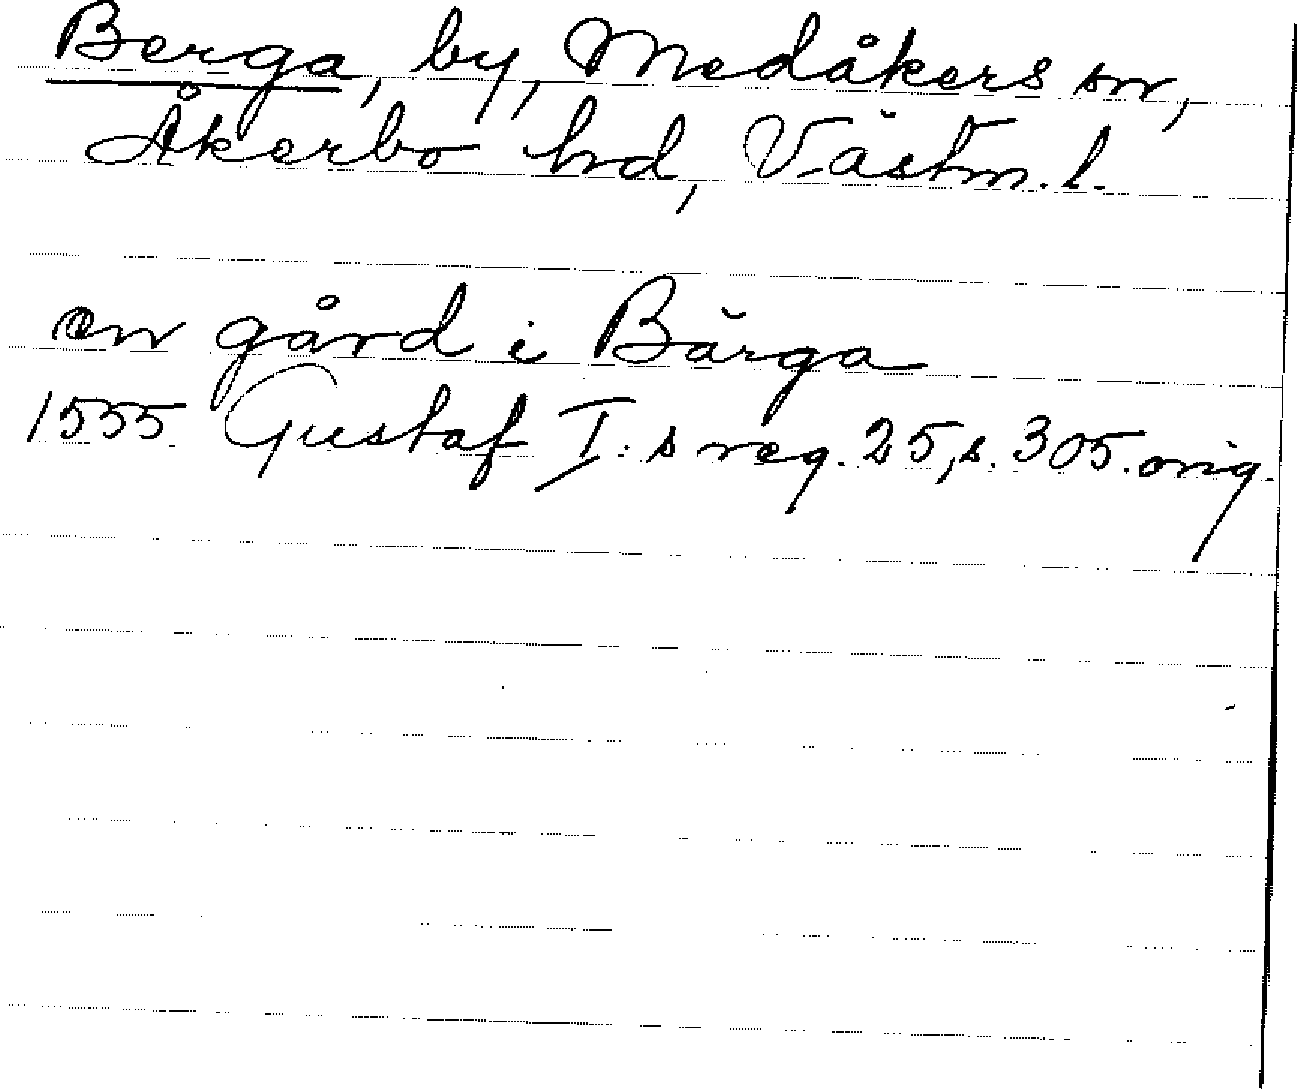 Berga, by, Medåkers sn,
Åkerbo hd, Västm. l.
en gård i Bärga
1555 Gustaf I:s reg. 25, s. 305. orig.